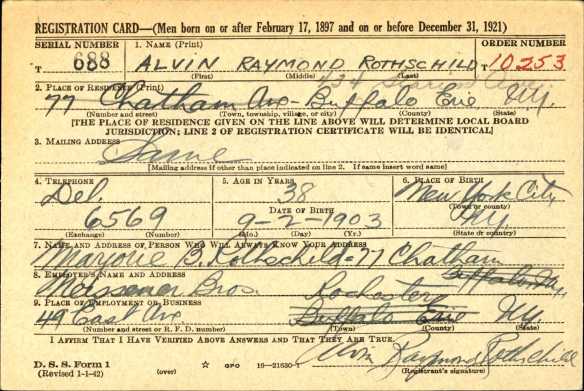 REGISTRATION CARD—(Men born on or after February 17, 1897 and on or before December 31, 1921)
SERIAL NUMBER
1. NAME (Print)
ORDER NUMBER
T 688
ALVIN RAYMOND ROTHSCHILD
T 10253
(First) (Middle) (Last)
2. PLACE OF RESIDENCE (Print)
77 Chatham Ave - Buffalo Erie N.Y.
(Number and street) (Town, township, village, or city) (County) (State)
[THE PLACE OF RESIDENCE GIVEN ON THE LINE ABOVE WILL DETERMINE LOCAL BOARD
JURISDICTION; LINE 2 OF REGISTRATION CERTIFICATE WILL BE IDENTICAL]
3. MAILING ADDRESS
Same
[Mailing address if other than place indicated on line 2. If same insert word same]
4. TELEPHONE
5. AGE IN YEARS
6. PLACE OF BIRTH
Del.
38
New York City
DATE OF BIRTH
(Town or county)
6569
9-2-1903
N.Y.
(Exchange) (Number)
(Mo.) (Day) (Yr.)
(State or country)
7. NAME AND ADDRESS OF PERSON WHO WILL ALWAYS KNOW YOUR ADDRESS
Marjorie B. Rothschild - 77 Chatham
Buffalo N.Y.
8. EMPLOYER'S NAME AND ADDRESS
Bros. Rochester
9. PLACE OF EMPLOYMENT OR BUSINESS
49 East Ave Buffalo Erie N.Y.
(Number and street or R. F. D. number) (Town) (County) (State)
I AFFIRM THAT I HAVE VERIFIED ABOVE ANSWERS AND THAT THEY ARE TRUE.
Alvin Raymond Rothschild
D. S. S. Form 1
(Revised 1-1-42) (over) ☆ GPO 16—21630-1
(Registrant's signature)